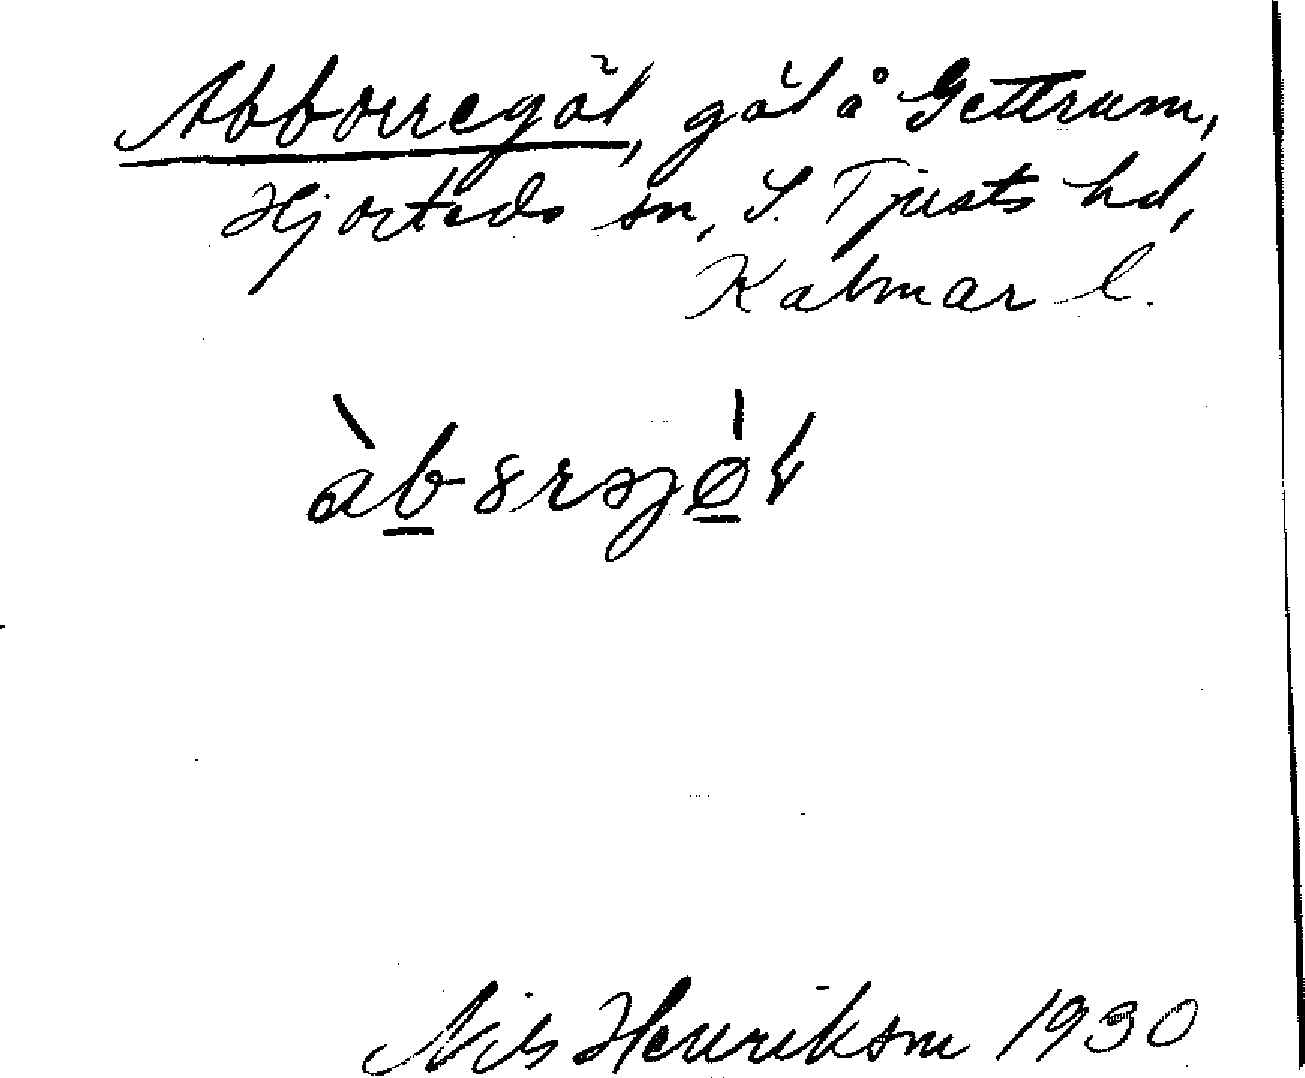 Abborregöl, göl å Gettrum,
Hjorteds sn, S. Tjusts hd,
Kalmar l.
Nils Henrikson 1930